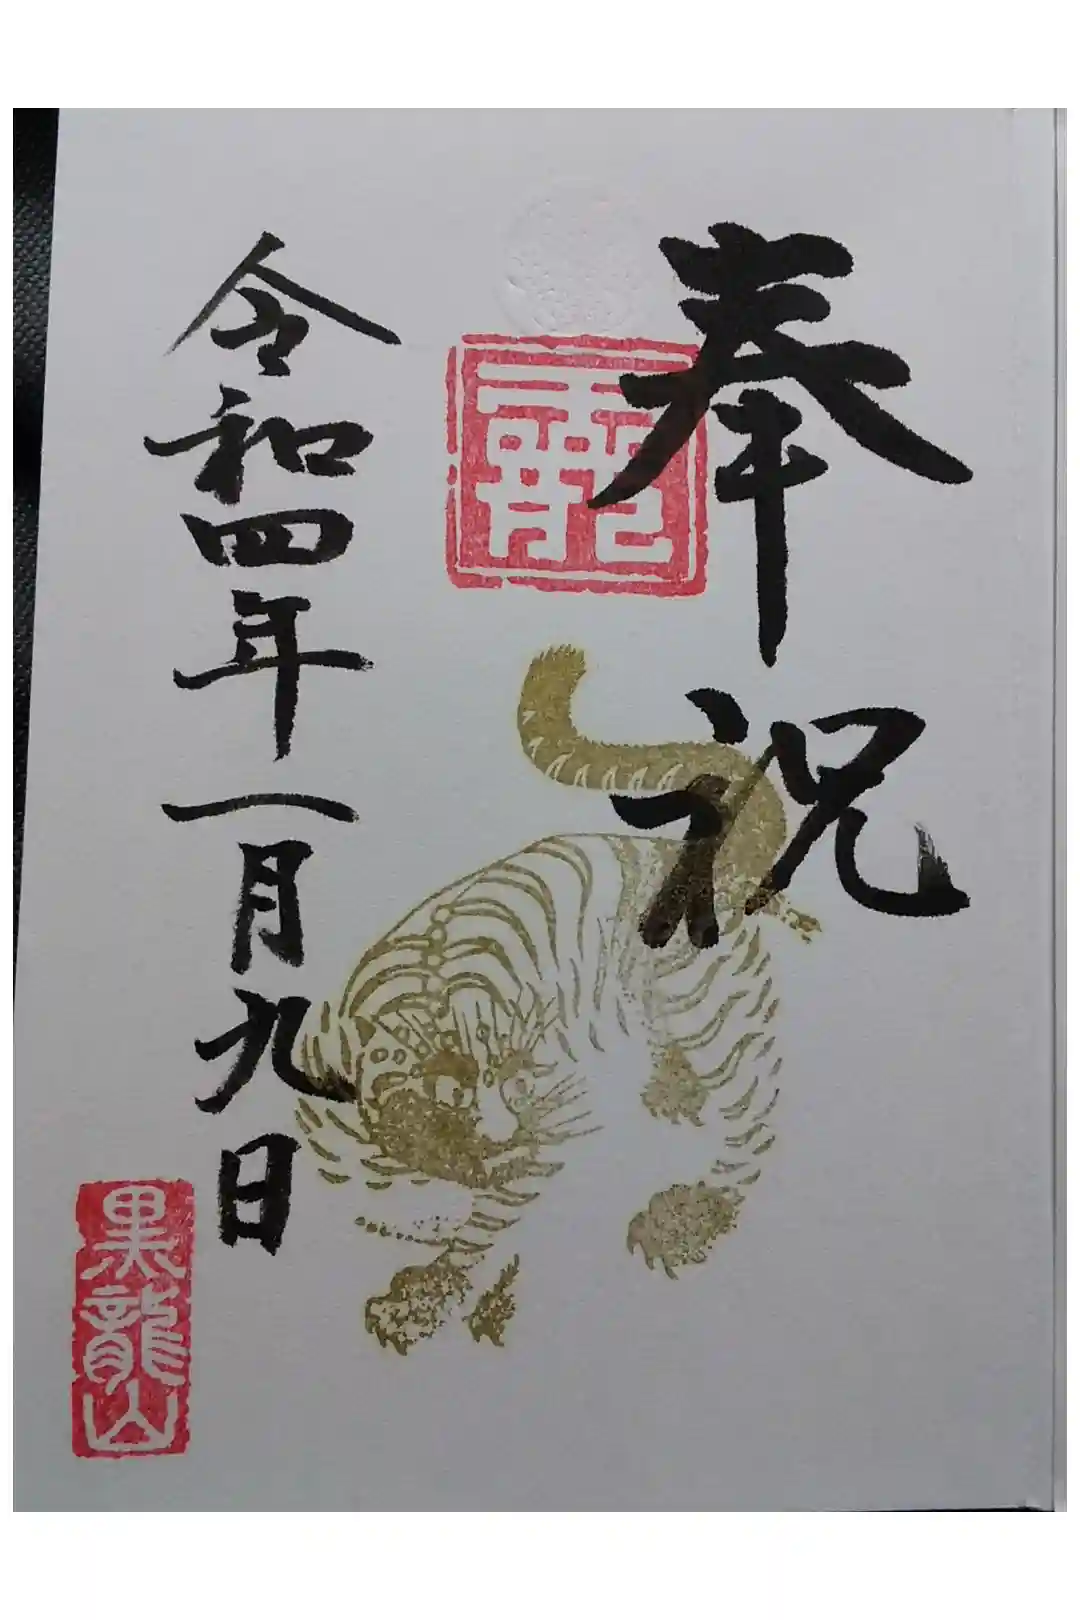 奉祝
令和四年一月九日
黒龍山